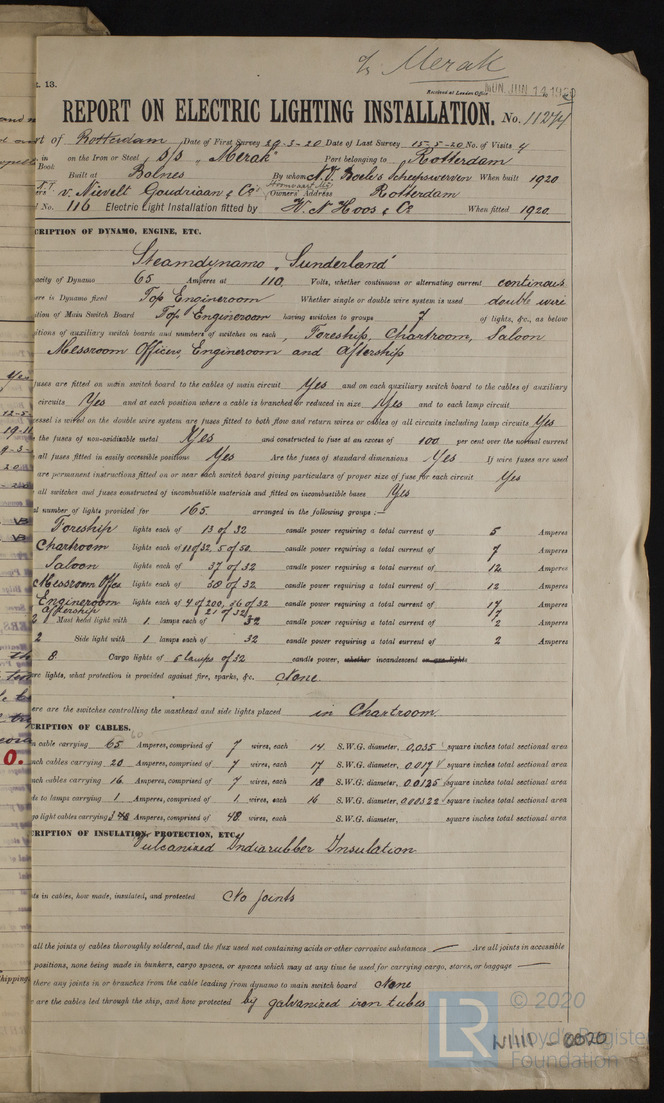 Merak
Received at London Office MON. JUN 14 1920
. 13.
REPORT ON ELECTRIC LIGHTING INSTALLATION. No. 11274
rt of Rotterdam Date of First Survey 29-3-20 Date of Last Survey 15-5-20 No. of Visits 4
in Book on the Iron or Steel S/S „Merak" Port belonging to Rotterdam
Built at Bolnes By whom N.V. Boele's Scheepswerven When built 1920
v. Nievelt Goudriaan & Co's Owners' Address Rotterdam
No. 116 Electric Light Installation fitted by W. N Hoos & Co When fitted 1920
CRIPTION OF DYNAMO, ENGINE, ETC.
Steamdynamo „Sunderland"
pacity of Dynamo 65 Amperes at 110 Volts, whether continuous or alternating current continous
ere is Dynamo fixed Top Engineroom Whether single or double wire system is used double wire
ition of Main Switch Board Top Engineroom having switches to groups 7 of lights, &c., as below
itions of auxiliary switch boards and numbers of switches on each , Foreship, Chartroom, Saloon
Messroom Officers, Engineroom and aftership
fuses are fitted on main switch board to the cables of main circuit Yes and on each auxiliary switch board to the cables of auxiliary
circuits Yes and at each position where a cable is branched or reduced in size Yes and to each lamp circuit
vessel is wired on the double wire system are fuses fitted to both flow and return wires or cables of all circuits including lamp circuits Yes
the fuses of non-oxidizable metal Yes and constructed to fuse at an excess of 100 per cent over the normal current
all fuses fitted in easily accessible positions Yes Are the fuses of standard dimensions Yes If wire fuses are used
are permanent instructions fitted on or near each switch board giving particulars of proper size of fuse for each circuit Yes
all switches and fuses constructed of incombustible materials and fitted on incombustible bases Yes
l number of lights provided for 165 arranged in the following groups :—
Foreship lights each of 13 of 32 candle power requiring a total current of 5 Amperes
Chartroom lights each of 11 of 32, 5 of 50 candle power requiring a total current of 7 Amperes
Saloon lights each of 37 of 32 candle power requiring a total current of 12 Amperes
Messroom Offics lights each of 38 of 32 candle power requiring a total current of 12 Amperes
Engineroom lights each of 4 of 200, 36 of 32 candle power requiring a total current of 17 Amperes
aftership 21 of 32 17
2 Mast head light with 1 lamps each of 32 candle power requiring a total current of 2 Amperes
2 Side light with 1 lamps each of 32 candle power requiring a total current of 2 Amperes
8 Cargo lights of 6 lamps of 32 candle power, whether incandescent or arc lights
arc lights, what protection is provided against fire, sparks, &c. None
ere are the switches controlling the masthead and side lights placed in Chartroom
CRIPTION OF CABLES.
n cable carrying 65 Amperes, comprised of 7 wires, each 14 S.W.G. diameter, 0,035 square inches total sectional area
nch cables carrying 20 Amperes, comprised of 7 wires, each 17 S.W.G. diameter, 0.017 square inches total sectional area
nch cables carrying 16 Amperes, comprised of 7 wires, each 18 S.W.G. diameter, 0.0125 square inches total sectional area
ds to lamps carrying 1 Amperes, comprised of 1 wires, each 16 S.W.G. diameter, 0.00322 square inches total sectional area
go light cables carrying 3.48 Amperes, comprised of 48 wires, each S.W.G. diameter, square inches total sectional area
CRIPTION OF INSULATION, PROTECTION, ETC.
Vulcanized Indiarubber Insulation
ts in cables, how made, insulated, and protected No joints
all the joints of cables thoroughly soldered, and the flux used not containing acids or other corrosive substances — Are all joints in accessible
positions, none being made in bunkers, cargo spaces, or spaces which may at any time be used for carrying cargo, stores, or baggage —
there any joints in or branches from the cable leading from dynamo to main switch board None
are the cables led through the ship, and how protected by galvanized iron tubes
LR © 2020
Lloyd's Register
Foundation
N1111 - 0020